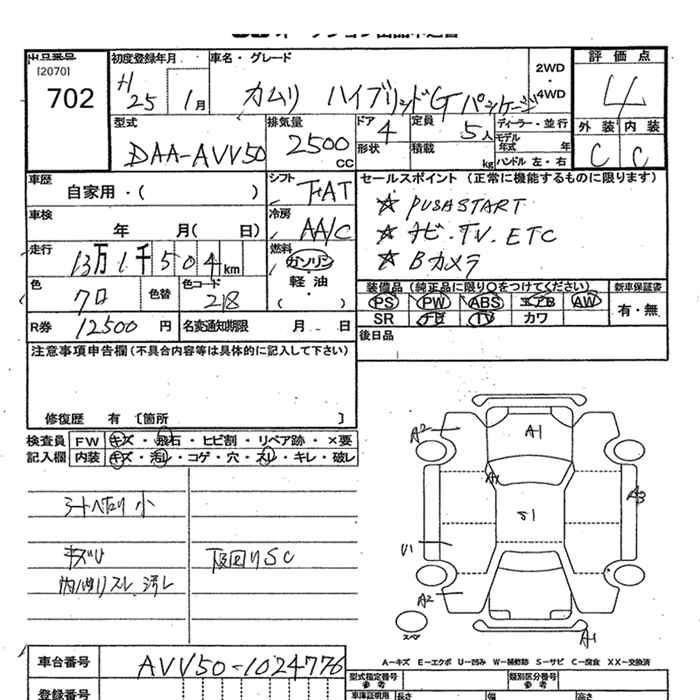 出品番号
[2070]
702
初度登録年月
H
25 1月
車名・グレード
カムリ ハイブリッドGTパッケージ
2WD
・
4WD
評価点
4
外装 内装
C C
型式
DAA-AVV50
排気量
2500
CC
ドア
4
形状
定員
5人
積載
kg
ディーラー・並行
モデル
年式 年
ハンドル 左・右
車歴
自家用・( )
シフト
FAT
セールスポイント (正常に機能するものに限ります)
☆ PUSHSTART
☆ ナビ.TV.ETC
☆ Bカメラ
車検
年 月( 日)
冷房
AA/C
走行
13万1千504km
燃料
ガソリン
・
軽・油
( )
色
クロ
色替
色コード
218
装備品 (純正品に限り○をつけてください)
新車保証書
有・無
PS PW ABS エアB AW
SR ナビ TV カワ
R券 12500 円
名変通知期限 月 日
後日品
注意事項申告欄(不具合内容等は具体的に記入して下さい)
修復歴 有 〔箇所 〕
検査員
記入欄
FW キズ・飛石・ヒビ割・リペア跡・×要
内装 キズ・汚レ・コゲ・穴・スレ・キレ・破レ
シートヘタリ小
キズU
内ハリスレ 汚レ
下回りSC
A2
A1
A1
A3
S1
U1
A2
A1
スペア
A-キズ E-エクボ U-凹み W-補修跡 S-サビ C-腐食 XX-交換済
車台番号
AVV50-1024776
登録番号
型式指定番号
参考
類別区分番号
参考
車庫証明用 長さ 幅 高さ